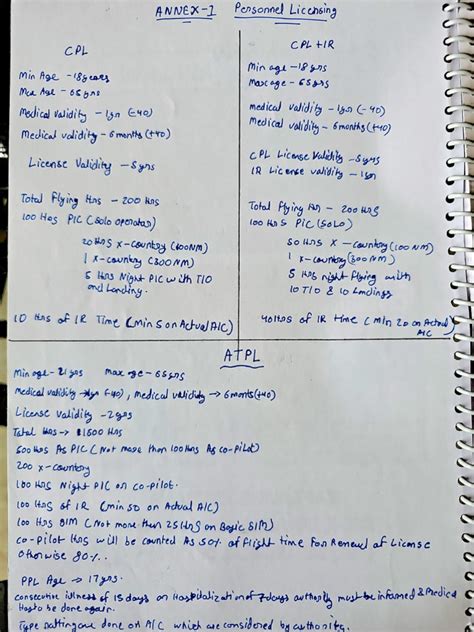 ANNEX-1 Personnel Licensing
CPL
Min Age - 18 years
Max Age - 65 yrs
Medical Validity - 1yr (-40)
Medical validity - 6 months (+40)
License Validity - 5 yrs
Total Flying Hrs - 200 Hrs
100 Hrs PIC (solo operator)
20 Hrs X-country (300NM)
1 X-country (300NM)
5 Hrs Night PIC with T/O
and Landing.
10 Hrs of IR Time (Min 5 on Actual A/C)
CPL + IR
Min age - 18 yrs
Max age - 65 yrs
Medical validity - 1yr (-40)
Medical Validity - 6 months (+40)
CPL License Validity - 5 yrs
IR License validity - 1yr
Total Flying Hr - 200 Hrs
100 Hrs PIC (SOLO)
50 Hrs X-country (100 NM)
1 X-country (300NM)
5 Hrs night flying with
10 T/O & 10 Landings
40 Hrs of IR time (Min 20 on Actual
A/C)
ATPL
Min age - 21 yrs max age - 65 yrs
Medical validity → 1yr (-40), Medical validity → 6 monts (+40)
License Validity - 2 yrs
Total Hrs → 1500 Hrs
500 Hrs As PIC (Not more than 100 Hrs As co-pilot)
200 X-country
100 Hrs Night PIC or co-pilot.
100 Hrs of IR (min 50 on Actual A/C)
100 Hrs SIM (Not more than 25 Hrs on Basic SIM)
Co-pilot Hrs will be counted As 50% of flight time For Renewal of License
otherwise 80%.
PPL Age → 17 yrs.
consecutive illness of 15 days or Hospitalization of 7 days authority must be informed & Medical
Has to be done again.
Type Ratting are done on A/C which are considered by authority.